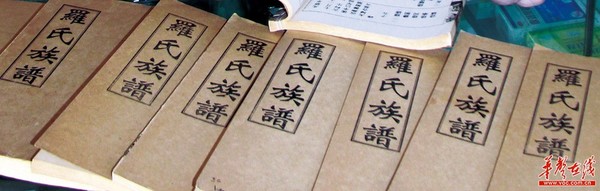 羅氏族譜
羅氏族譜
羅氏族譜
羅氏族譜
羅氏族譜
羅氏族譜
羅氏族譜
华声在线
www.voc.com.cn